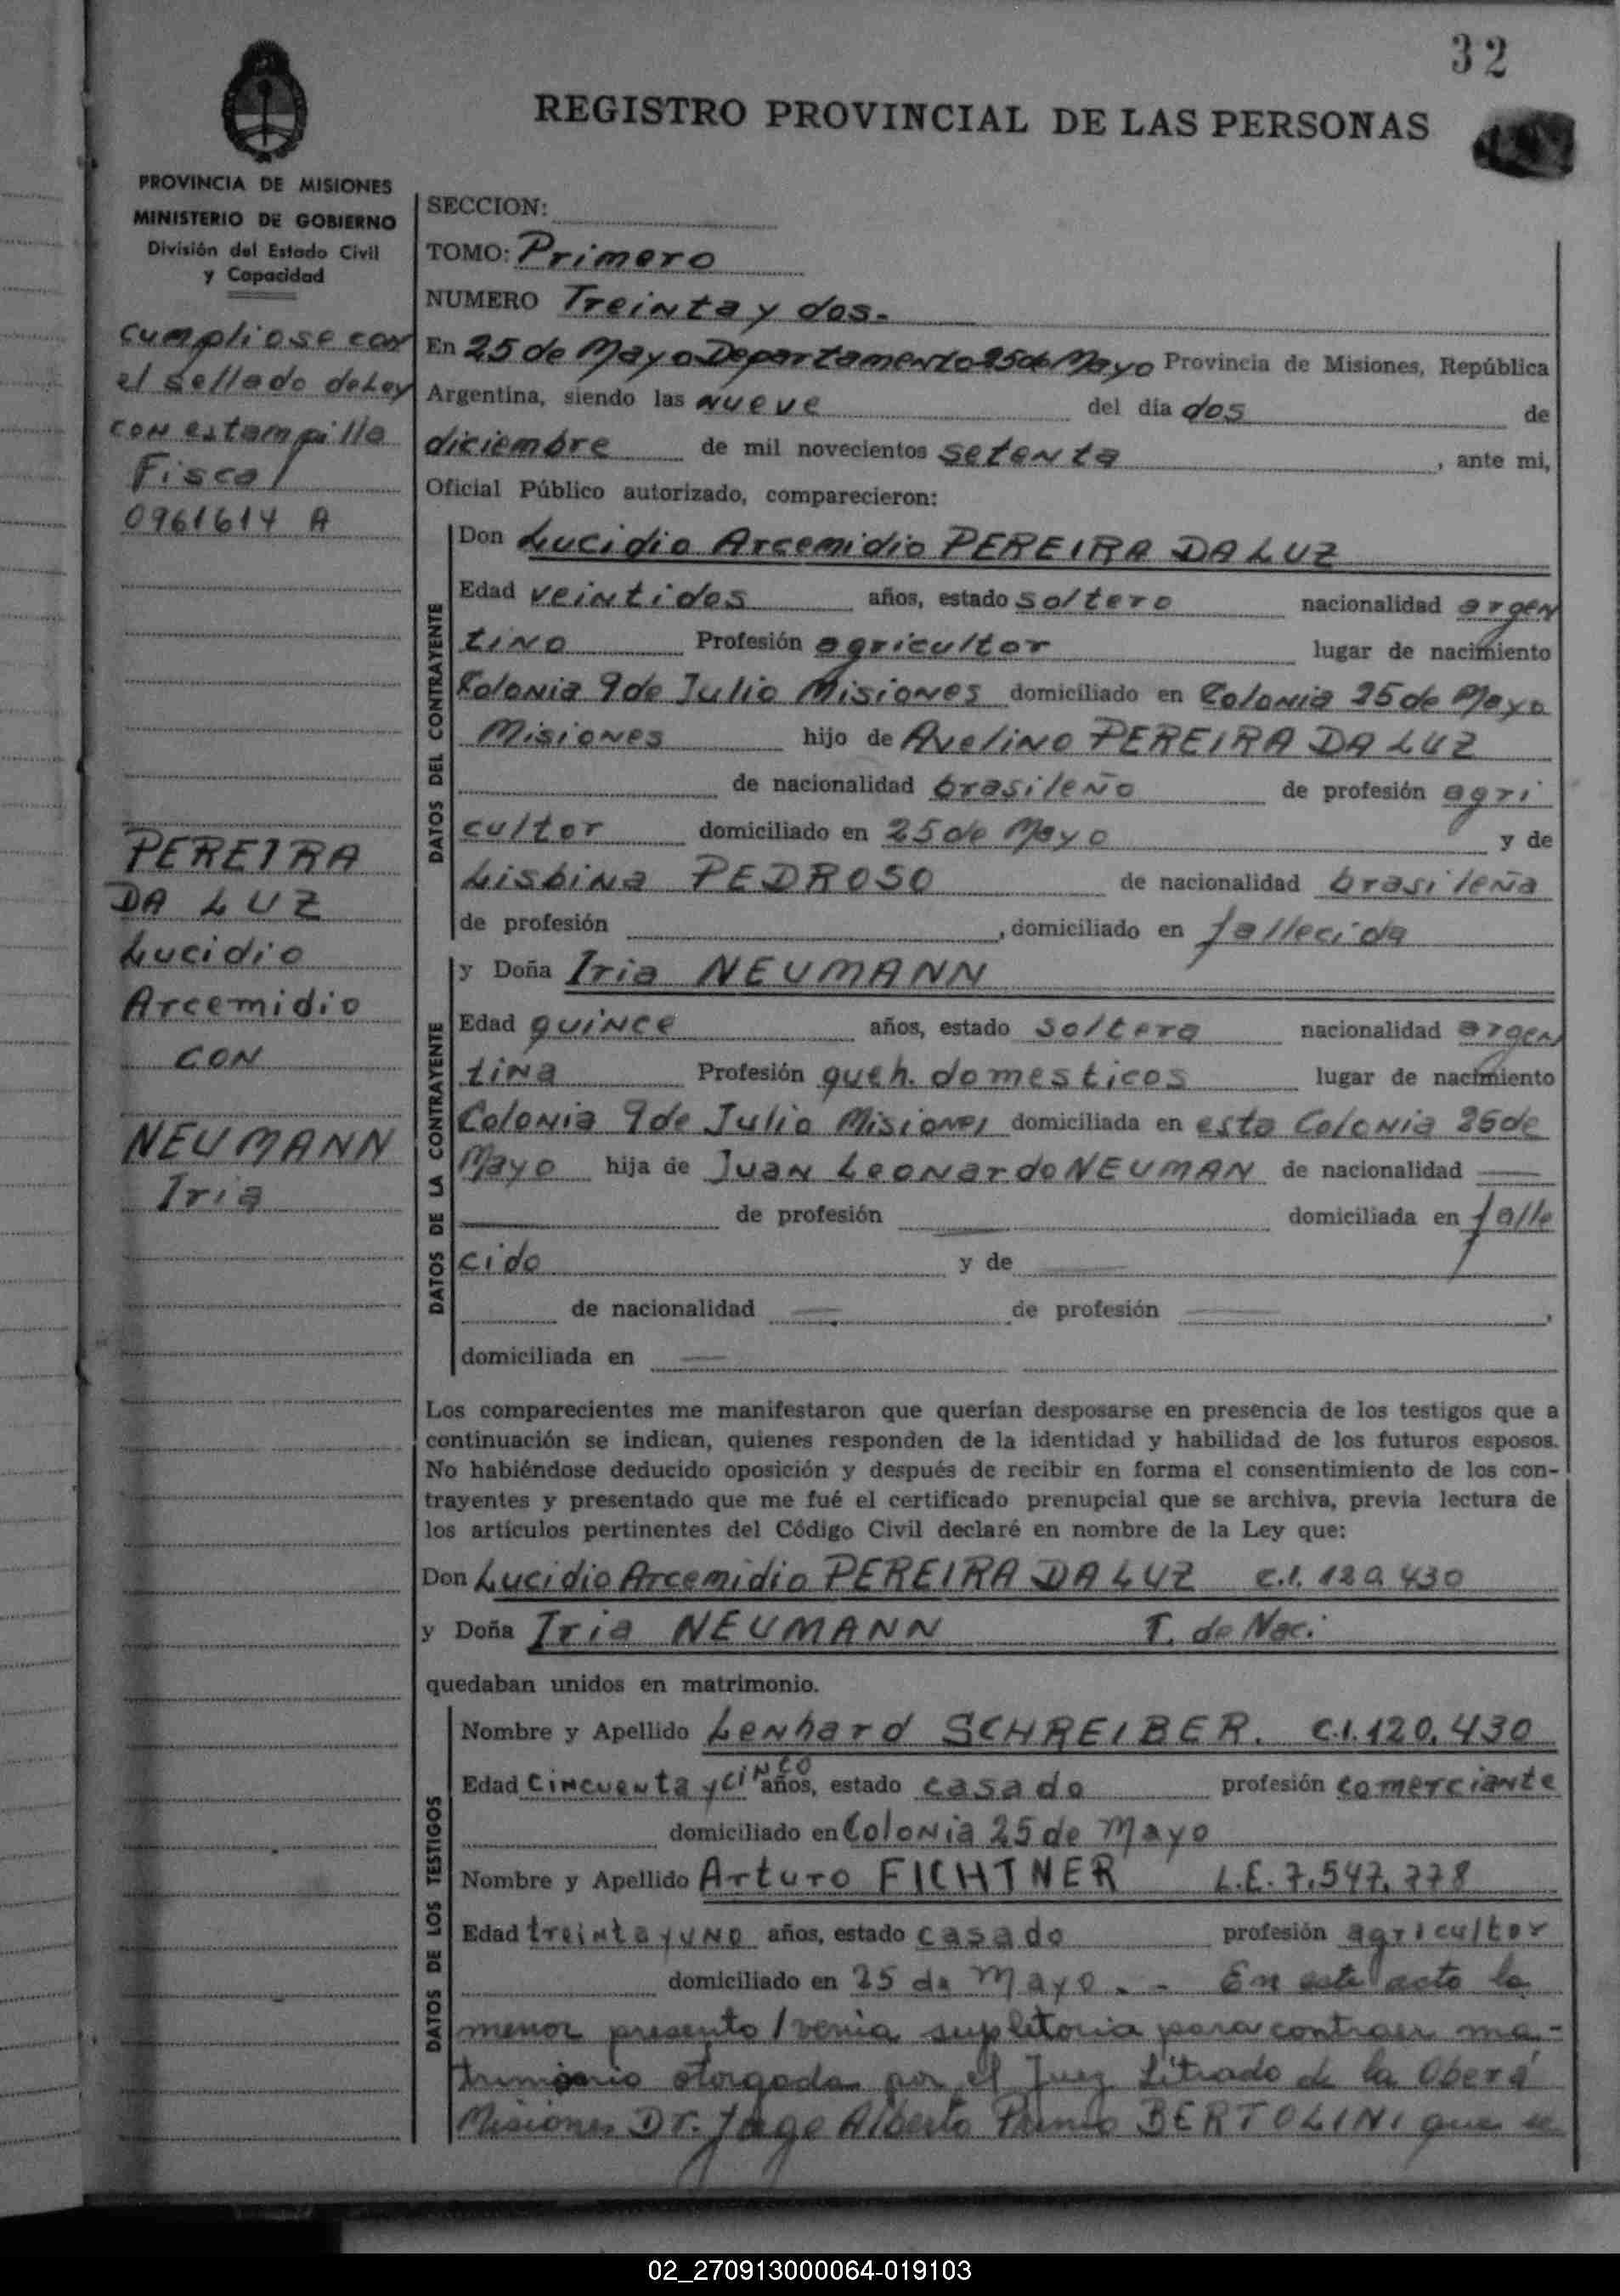 32
REGISTRO PROVINCIAL DE LAS PERSONAS
PROVINCIA DE MISIONES
MINISTERIO DE GOBIERNO
División del Estado Civil
y Capacidad
cumpliose con
el sellado de Ley
con estampilla
Fiscal
0961614 A
PEREIRA
DA LUZ
Lucidio
Arcemidio
CON
NEUMANN
Iria
SECCION:
TOMO: Primero
NUMERO Treinta y dos.
En 25 de Mayo Departamento 25 de Mayo Provincia de Misiones, República
Argentina, siendo las nueve del día dos de
diciembre de mil novecientos setenta, ante mi,
Oficial Público autorizado, comparecieron:
DATOS DEL CONTRAYENTE
Don Lucidio Arcemidio PEREIRA DA LUZ
Edad veintidos años, estado soltero nacionalidad argen
tino Profesión agricultor lugar de nacimiento
Colonia 9 de Julio Misiones domiciliado en Colonia 25 de Mayo
Misiones hijo de Avelino PEREIRA DA LUZ
de nacionalidad brasileño de profesión agri
cultor domiciliado en 25 de Mayo y de
Lisbina PEDROSO de nacionalidad brasileña
de profesión , domiciliado en fallecida
DATOS DE LA CONTRAYENTE
y Doña Iria NEUMANN
Edad quince años, estado soltera nacionalidad argen
tina Profesión queh. domesticos lugar de nacimiento
Colonia 9 de Julio Misiones domiciliada en esta Colonia 25 de
Mayo hija de Juan Leonardo NEUMAN de nacionalidad —
— de profesión — domiciliada en falle
cido y de —
de nacionalidad — de profesión —,
domiciliada en —
Los comparecientes me manifestaron que querían desposarse en presencia de los testigos que a
continuación se indican, quienes responden de la identidad y habilidad de los futuros esposos.
No habiéndose deducido oposición y después de recibir en forma el consentimiento de los con-
trayentes y presentado que me fué el certificado prenupcial que se archiva, previa lectura de
los artículos pertinentes del Código Civil declaré en nombre de la Ley que:
Don Lucidio Arcemidio PEREIRA DA LUZ c.1. 120.430
y Doña Iria NEUMANN T. de Nac.
quedaban unidos en matrimonio.
DATOS DE LOS TESTIGOS
Nombre y Apellido Lenhard SCHREIBER. C.1. 120.430
Edad cincuenta y cinco años, estado casado profesión comerciante
domiciliado en Colonia 25 de Mayo
Nombre y Apellido Arturo FICHTNER L.E. 7.547.778
Edad treinta y uno años, estado casado profesión agricultor
domiciliado en 25 de Mayo. - En este acto la
menor presento / venia supletoria para contraer ma-
trimonio otorgada por el Juez Litrado de la Oberá
Misiones Dr. Jage Alberto Primo BERTOLINI que se
02_270913000064-019103